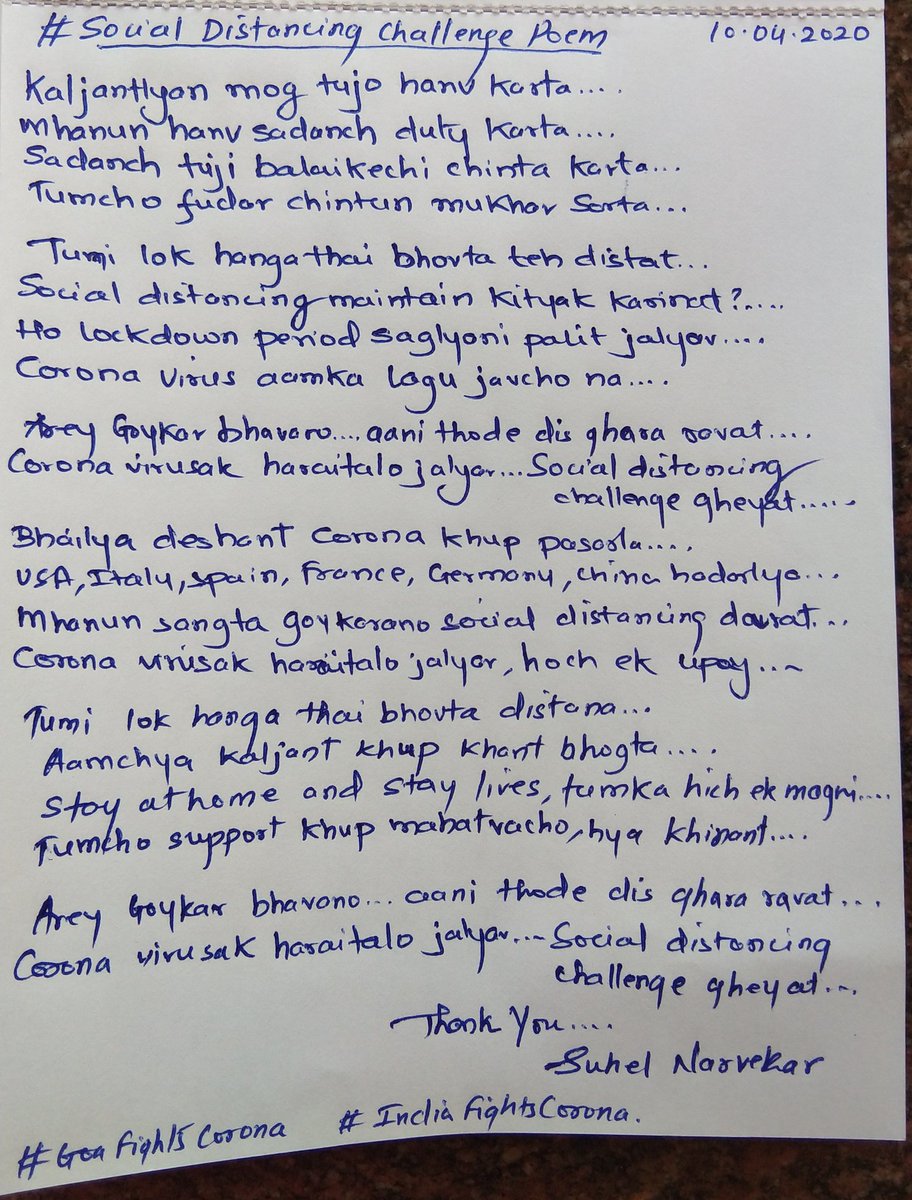 # Social Distancing Challenge Poem 10.04.2020
Kaljantlyan mog tujo hanv karta....
Mhanun hanv sadanch duty karta....
Sadanch tuji balaikechi chinta karta...
Tumcho fudar chintun mukhar sarta...
Tumi lok hanga thai bhovta teh distat...
Social distancing maintain kityak karinat?.....
Ho lockdown period saglyoni palit jalyar....
Corona virus aamka lagu javcho na....
Arey Goykar bhavano.... aani thode dis ghara ravat.....
Corona virusak haraitalo jalyar... Social distancing
challenge gheyat.....
Bhailya deshant Corona khup pasorla....
USA, Italy, Spain, France, Germany, China hadarlya...
Mhanun sangta goykarano social distancing davrat...
Corona virusak haraitalo jalyar, hoch ek upay...
Tumi lok hanga thai bhovta distana...
Aamchya kaljant khup khant bhogta....
Stay at home and stay lives, tumka hich ek magni....
Tumcho support khup mahatvacho, hya khinant....
Arey Goykar bhavano... aani thode dis ghara ravat...
Corona virusak haraitalo jalyar... Social distancing
challenge gheyat...
Thank You....
Suhel Narvekar
#Goa Fights Corona # India Fights Corona.